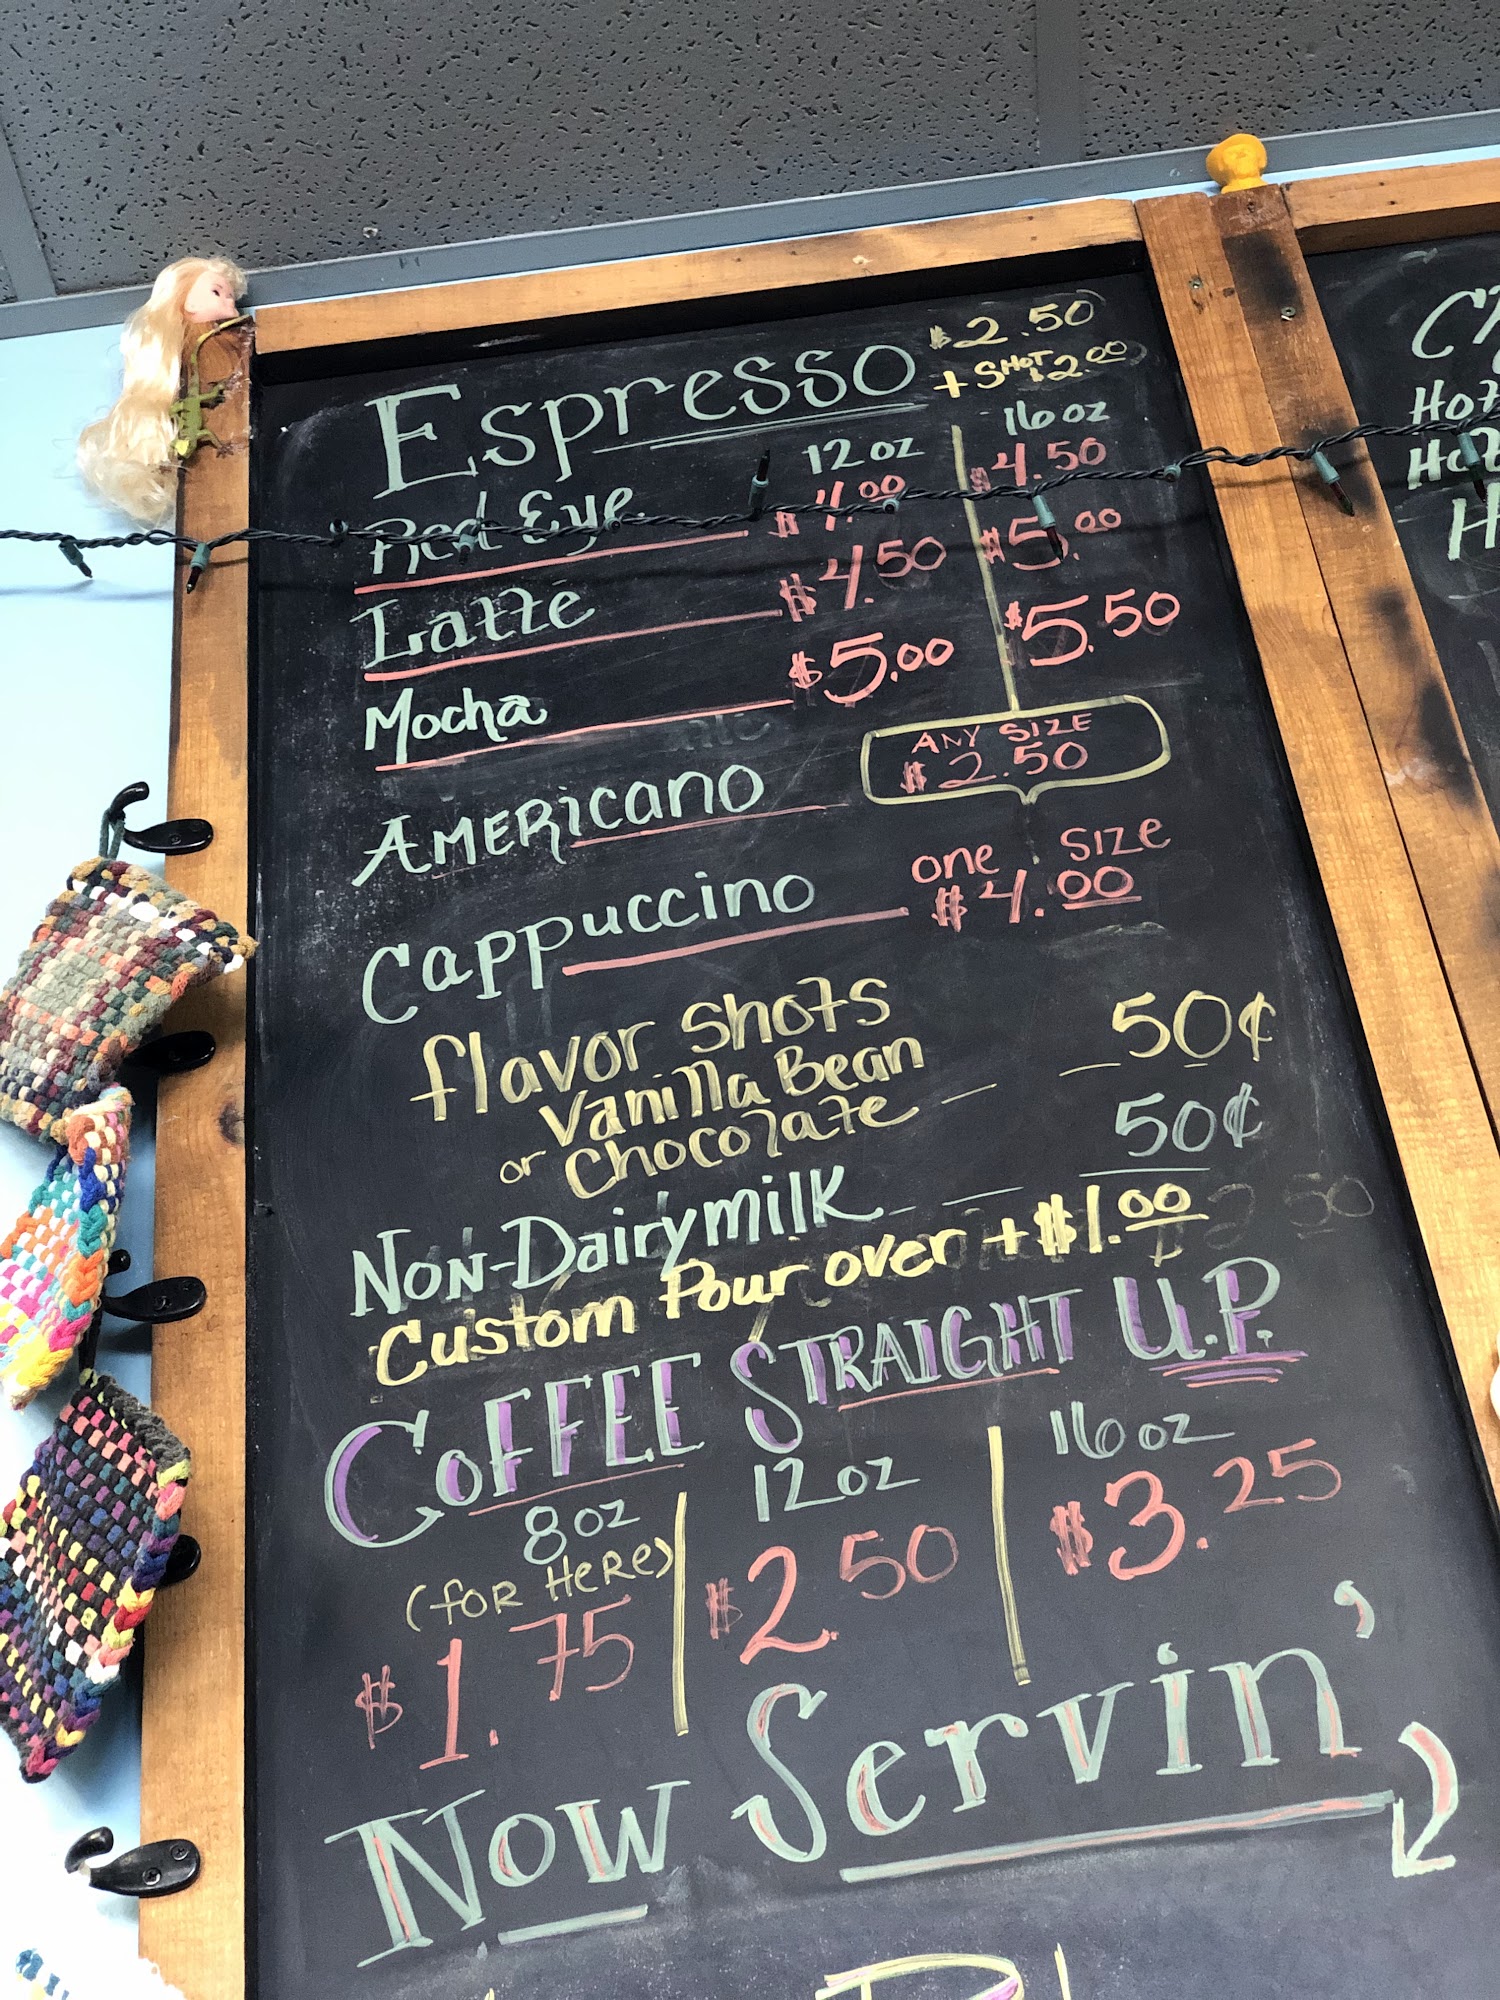 Espresso $2.50
+ SHOT $2.00
12 oz 16 oz
Red Eye $4.00 $4.50
Latte $4.50 $5.00
Mocha $5.00 $5.50
AMERicano ANY SIZE $2.50
Cappuccino one SIZE $4.00
flavor shots
Vanilla Bean
or Chocolate 50¢
Non-Dairy milk 50¢
Custom Pour over +$1.00
COFFEE STRAIGHT U.P.
8 oz (for Here) $1.75
12 oz $2.50
16 oz $3.25
Now Servin'
Hot